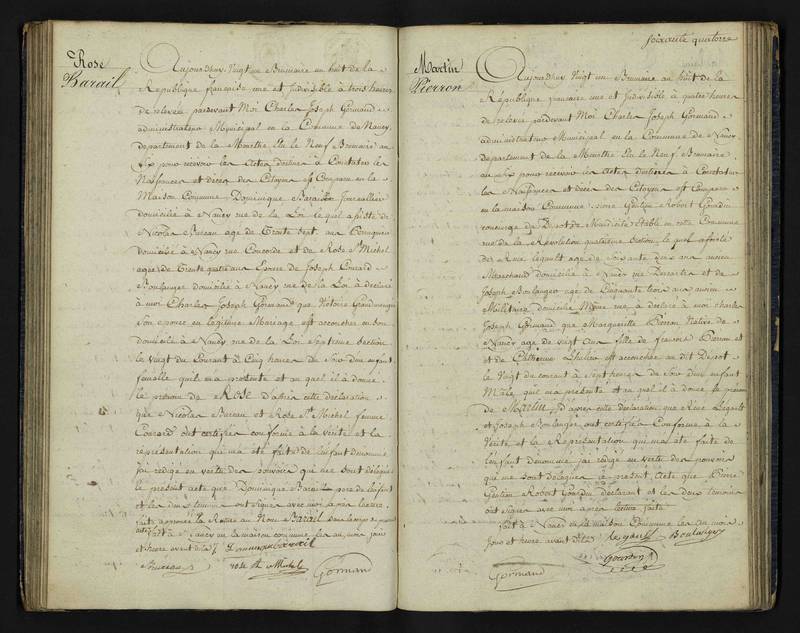 Rose
Barail
Aujourdhuy Vingt un Brumaire an huit de la
République française une et Indivisible à trois heures
de relevée pardevant Moi Charles Joseph Gormand
administrateur Municipal en la Commune de Nancy
departement de la Meurthe Elu le Neuf Brumaire an
Six pour recevoir les Actes destinés à Constater les
Naissances et décès des Citoyens est Comparu en la
Maison Commune Dominique Barail
domicilié à Nancy rue de la Loi lequel assisté de
Nicolas Bureau age de Trente Sept ans Perruquier
domicilié à Nancy rue Concorde et de Rose St Michel
agée de Trente quatre ans Epouse de Joseph Conrard
Boulanger domicilié à Nancy rue de la Loi à déclaré
à moi Charles Joseph Gormand que Victoire
Son epouse en légitime Mariage est accouchée en son
domicile à Nancy rue de la Loi Septieme Section
le Vingt du Courant à Cinq heures du Soir d'un enfant
femelle qu'il m'a présenté et au quel il à donné
le prenom de ROSE d'après cette declaration
que Nicolas Bureau et Rose St Michel femme
Conrard ont certifiée conforme à la vérité et la
représentation qui m'a été faite de l'enfant denommé
j'ai rédigé en vertu des pouvoirs qui me sont délégués
le présent acte que Dominique Barail pere de l'enfant
et les deux temoins ont signés avec moi après lecture
faite approuvé la Rature au Nom Barail
fait à Nancy en la maison commune les an, mois jour
et heure avant dits
Dominique Barail
Bureau
rose St Michel
Gormand
soixante quatorze
Martin
Pierron
Aujourdhuy Vingt un Brumaire an huit de la
République francaise une et Indivisible à quatre heures
de relevée pardevant Moi Charles Joseph Gormand
administrateur Municipal en la Commune de Nancy
departement de la Meurthe Elu le Neuf Brumaire
an Six pour recevoir les Actes destinés à Constater
les Naissances et décès des Citoyens est Comparu
en la maison Commune Pierre Gaston Robert Gourdin
concierge du Depot de Mendicité établi en cette Commune
rue de la Révolution quatrieme Section, le quel assisté
de René Legault age de Soixante ans ancien
Marchand domicilié à Nancy rue Descartes et de
Joseph Boulanger age de Cinquante trois ans ancien
Militaire, domicilié Même rue, à déclaré à moi charles
Joseph Gormand que Marguerite Pierron Native de
Nancy age de vingt ans fille de francois Pierron et
et de Catherine est accouchée au dit Depot
le Vingt du courant à Sept heures du Soir d'un enfant
Male qu'il m'a présenté et au quel il à donné le prénom
de Martin, d'après cette declaration que René Legault
et Joseph Boulanger ont certifiée Conforme à la
Vérité et la Représentation qui m'a été faite de
l'enfant dénommé j'ai rédigé en vertu des pouvoirs
qui me sont délégués le présent acte que Pierre
Gaston Robert Gourdin déclarant et les deux temoins
ont signés avec moi après lecture faite
fait à Nancy en la maison Commune les an mois
jour et heure avant dits
Legault
Boulanger
Gourdin
Gormand